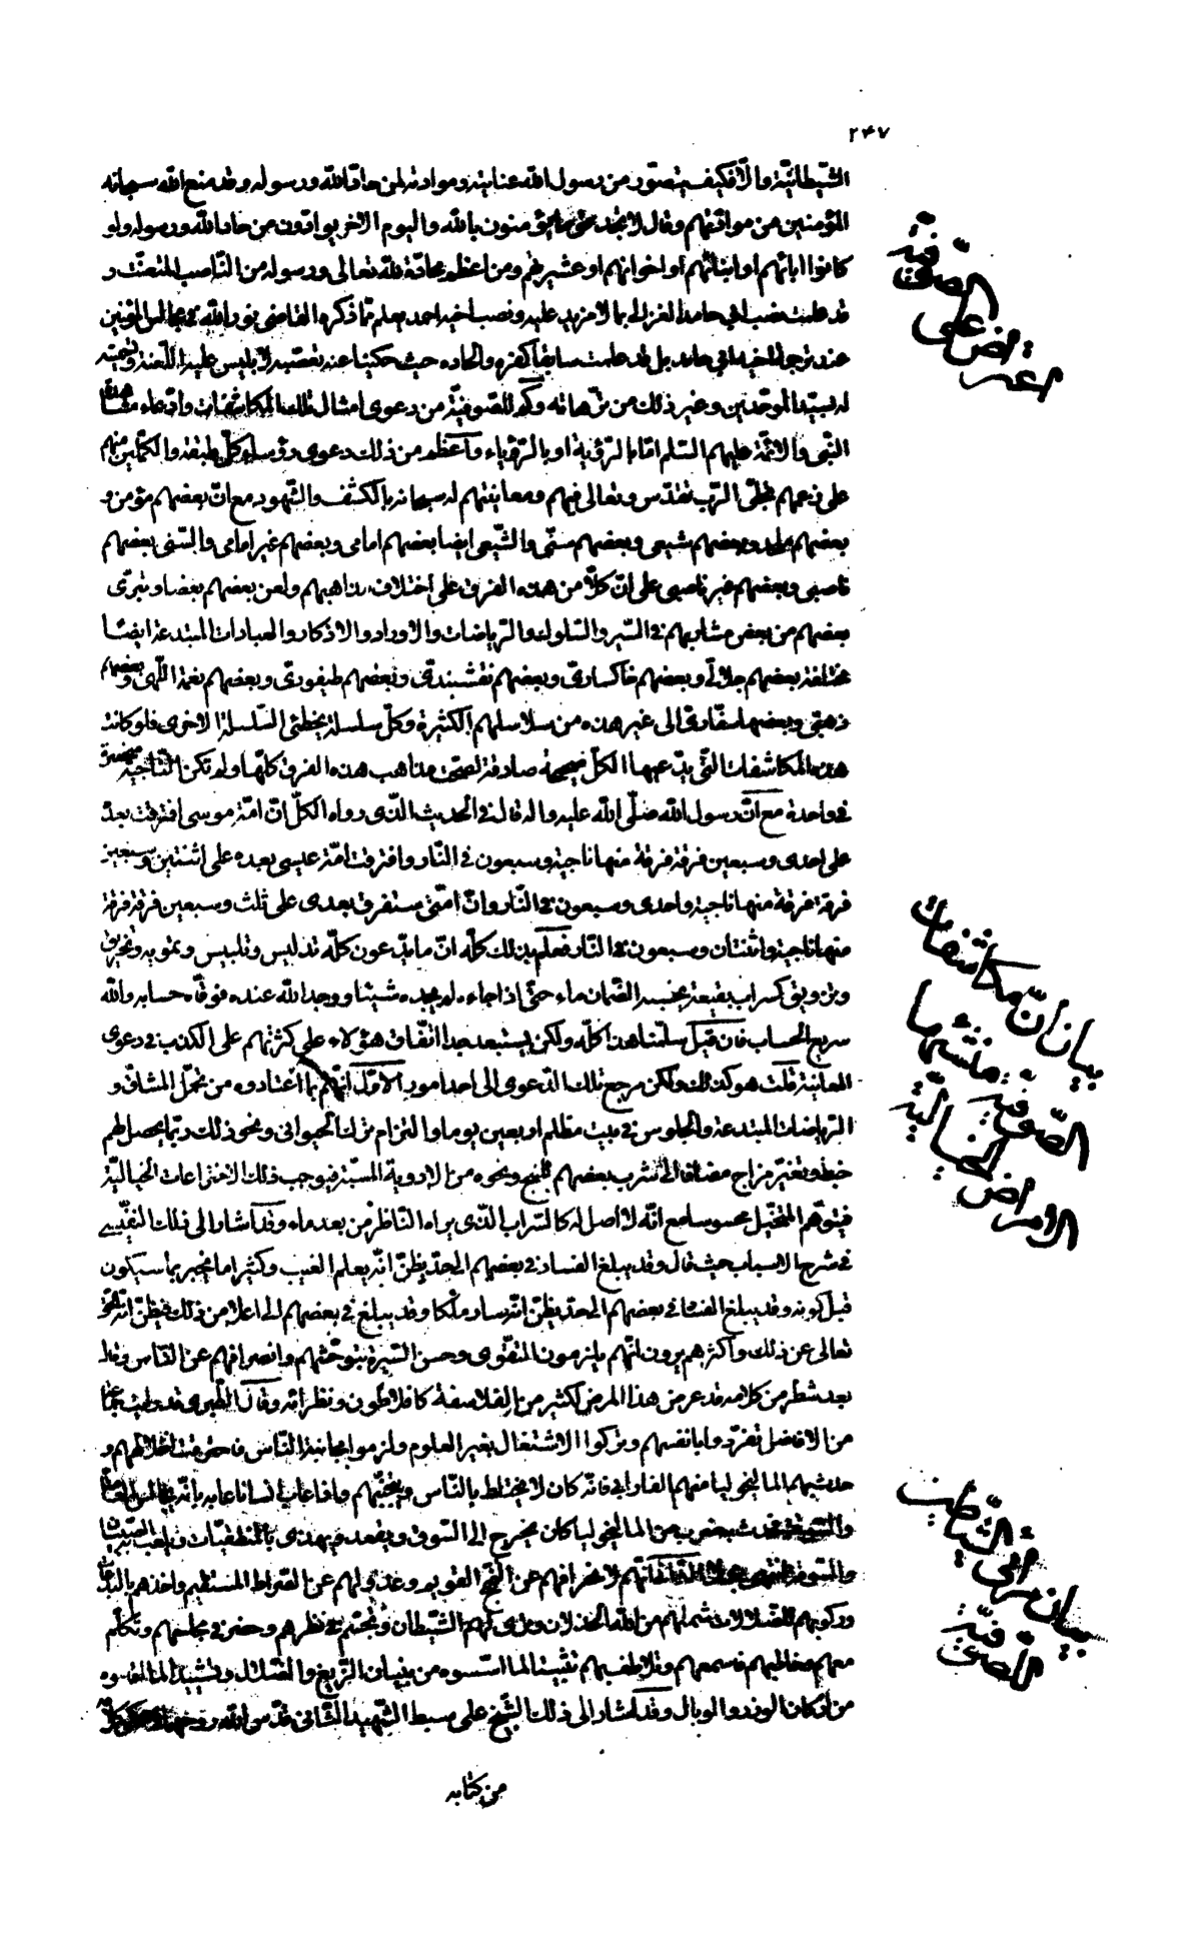 ۲۴۷
الشّيطانيّة والّا فكيف يتصوّر من رسول الله عنايته وموادته لمن حادّ الله ورسوله وقد منع الله سبحانه
المؤمنين من موادّتهم وقال لا تجد قوما يؤمنون بالله واليوم الآخر يوادّون من حادّ الله ورسوله ولو
كانوا اباءهم او ابنائهم او اخوانهم او عشيرتهم ومن اعظم محادّة لله تعالى ورسوله من النّاصب المتعنّت و
قد علمت نصب ابي حامد الغزالي بما لا مزيد عليه ونصب اخيه احمد يعلم ممّا ذكره القاضي نور الله في مجالس المؤمنين
عند ترجمة اخيه ابي حامد بل قد علمت سابقا كفره والحاده حيث حكينا عنه تعصّبه لابليس عليه اللّعنة وتسميته
له بسيّد الموحّدين وغير ذلك من ترّهاته وكم للصّوفيّة من دعوى امثال تلك المكاشفات وادّعاء مشاهدة
النّبي والائمّة عليهم السّلام امّا بالرّؤية او بالرّؤياء واعظم من ذلك دعوى رؤساء كلّ طبقة والكمّلين منهم
على زعمهم تجلّي الرّب تقدّس وتعالى فيهم ومعاينتهم له سبحانه بالكشف والشّهود مع انّ بعضهم مؤمن و
بعضهم ملحد وبعضهم شيعي وبعضهم سنّي والشّيعي ايضا بعضهم امامي وبعضهم غير امامي والسّنّي بعضهم
ناصبي وبعضهم غير ناصبي على انّ كلّا من هذه الفرق على اختلاف مذاهبهم ولعن بعضهم بعضا وتبرّى
بعضهم من بعض مشاربهم في السّير والسّلوك والرّياضات والاوراد والاذكار والعبادات المبتدعة ايضا
مختلفة بعضهم جلاليّ وبعضهم خاكساريّ وبعضهم نقشبنديّ وبعضهم طيفوريّ وبعضهم نعمة اللّهيّ وبعضهم
ذهبيّ وبعضهم صفّاريّ الى غير هذه من سلاسلهم الكثيرة وكلّ سلسلة يخطئ السّلسلة الاخرى فلو كانت
هذه المكاشفات الّتي يدّعيها الكلّ صحيحة صادقة لصحّت مذاهب هذه الفرق كلّها ولم تكن النّاجية منحصرة
في واحدة مع انّ رسول الله صلّى الله عليه واله قال في الحديث الّذي رواه الكلّ انّ امّة موسى افترقت بعده
على احدى وسبعين فرقة فرقة منها ناجية وسبعون في النّار وافترقت امّة عيسى بعده على اثنتين وسبعين
فرقة فرقة منها ناجية واحدى وسبعون في النّار وانّ امّتي ستفرق بعدى على ثلث وسبعين فرقة فرقة
منها ناجية واثنتان وسبعون في النّار فعلم بذلك كلّه انّ ما يدّعون كلّه تدليس وتلبيس وتمويه وتخريق
وتزويق كسراب بقيعة يحسبه الظّمان ماء حتّى اذا جاءه لم يجده شيئا ووجد الله عنده فوفّاه حسابه والله
سريع الحساب فان قيل سلّمنا هذا كلّه ولكن يستبعد جدا اتّفاق هؤلاء على كثرتهم على الكذب في دعوى
المعاينة قلت هو كذلك ولكن مرجع تلك الدّعوى الى احد امور الاوّل انّهم بما اعتادوه من تحمّل المشاقّ و
الرّياضات المبتدعة والجلوس في بيت مظلم اربعين يوما والتزام ترك الحيواني ونحو ذلك ربّما يحصل لهم
خبط وتغيّر مزاج مضافا الى شرب بعضهم للبنج ونحوه من الادوية المسبّتة فيوجب ذلك الاختراعات الخياليّة
فيتوهّم المتخيّل محسوسا مع انّه لا اصل له كالسّراب الّذي يراه النّاظر من بعد ماء وقد اشار الى ذلك النّفيسي
في شرح الاسباب حيث قال وقد يبلغ الفساد في بعضهم الى حدّ يظنّ انّه يعلم الغيب وكثيرا ما يخبر بما سيكون
قبل كونه وقد يبلغ الفساد في بعضهم الى حدّ يظنّ انّه صار ملكا وقد يبلغ في بعضهم الى اعلا من ذلك فيظنّ انّه الحقّ
تعالى عن ذلك واكثرهم يرون انّهم يلزمون التقوى وحسن السّيرة بتوحّشهم وانصرافهم عن النّاس وقال
بعد شطر من كلامه قد عرض هذا المرض لكثير من الفلاسفة كافلاطون ونظرائه وقال الطّبري قد رايت جماعة
من الافاضل تفرّدوا بانفسهم وتركوا الاشتغال بغير العلوم ولزموا مجانبة النّاس فاحترقت اخلاطهم و
حدث بهم المالنخوليا منهم الفارابي فانّه كان لا يختلط بالنّاس ويتجنّبهم
من اركان الوزر والوبال وقد اشار الى ذلك الشّيخ علي سبط الشّهيد الثّاني قدّس الله روحهما
من كتابه
اعتراض على
الصّوفيّة
بيان انّ مكاشفات
الصّوفيّة منشئها
الامراض الخياليّة
بيان ترائي الشّياطين
للصّوفيّة